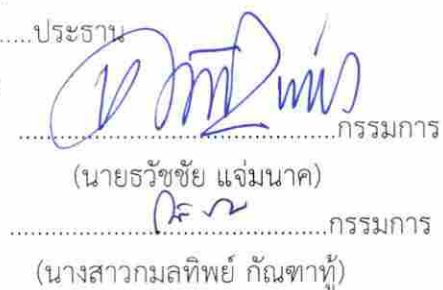 .....ประธาน
กรรมการ
(นายธวัชชัย แจ่มนาค)
กรรมการ
(นางสาวกมลทิพย์ กัณฑาทู้)